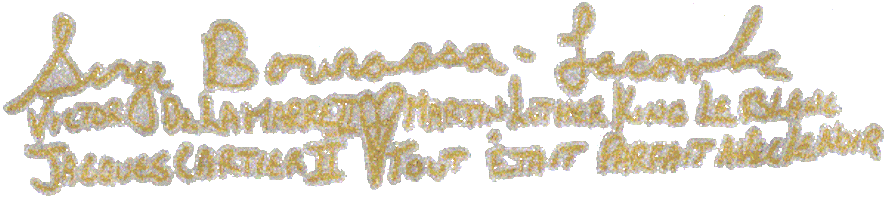 Serge Bourassa-Lacombe
Victor De LaMarre II Martin Luther King Le Blanc
Jacques Cartier II Tout était